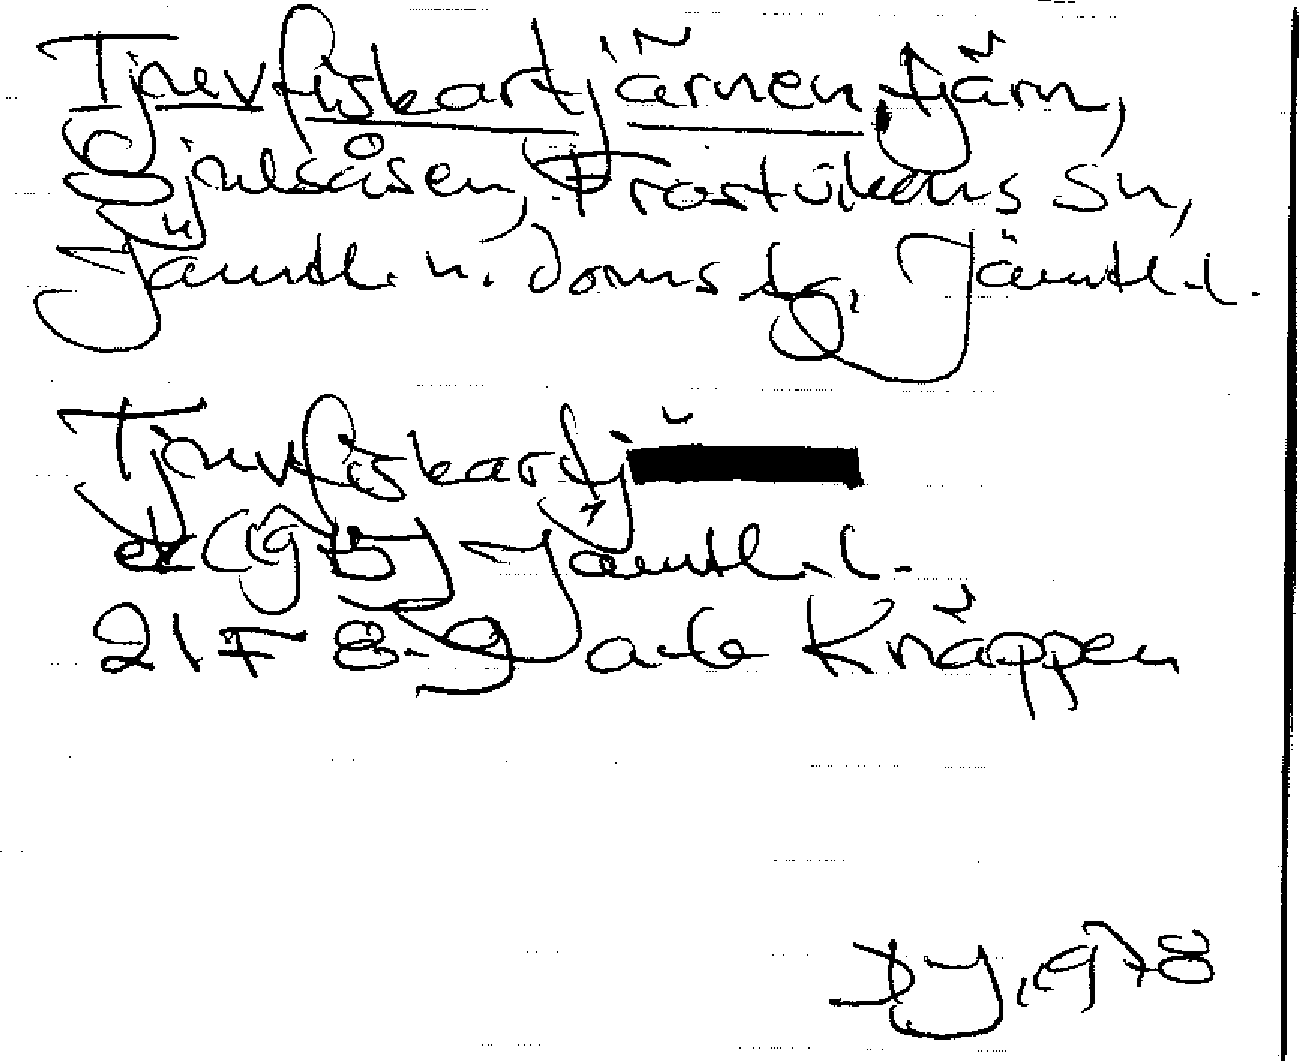 Tjuvfiskartjärnen, tjärn,
Gjulsåsen, Frostvikens sn,
Jämtl. n. doms tg, Jämtl. l.
Tjuvfiskartj
ek (1975) Jämtl. l.
21 F 8-9 a-b Knäppen
DJ, 1978